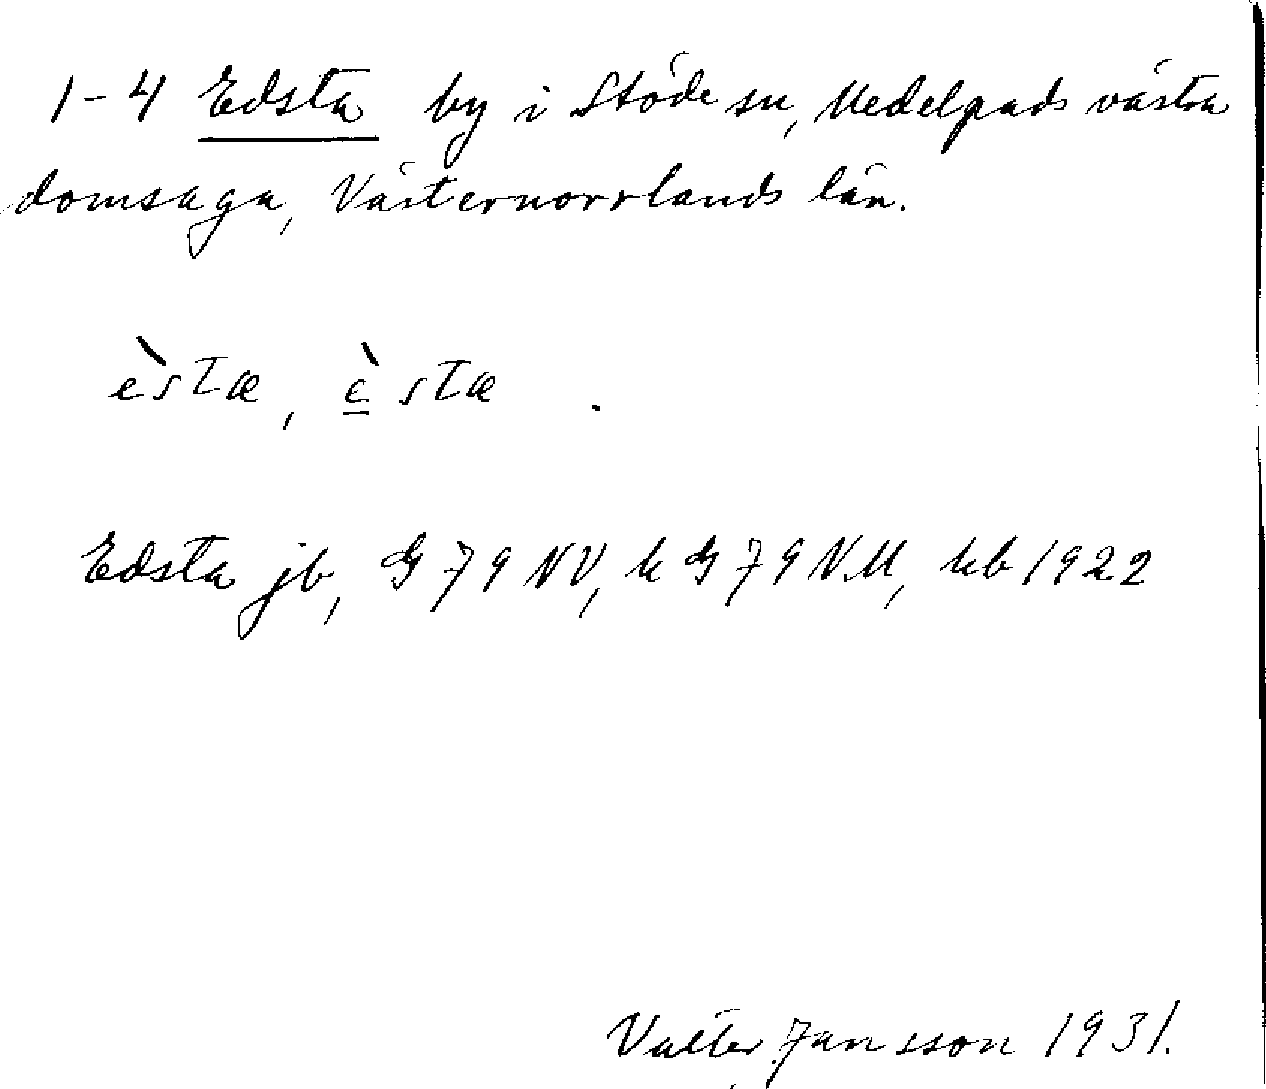 1-4 Edsta by i Stöde sn, Medelpads västra
domsaga, Västernorrlands län.
èsta, è̲sta .
Edsta jb, G 79 NV, k G 79 NV, kb 1922
Valter Jansson 1931.